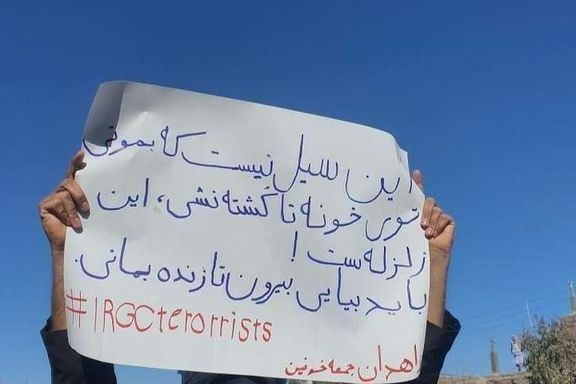 این سیل نیست که بمونی
توی خونه تا کشته نشی، این
زلزله ست!
باید بیایی بیرون تا زنده بمانی.
#IRGCterorrists
زاهدان جمعه خونین